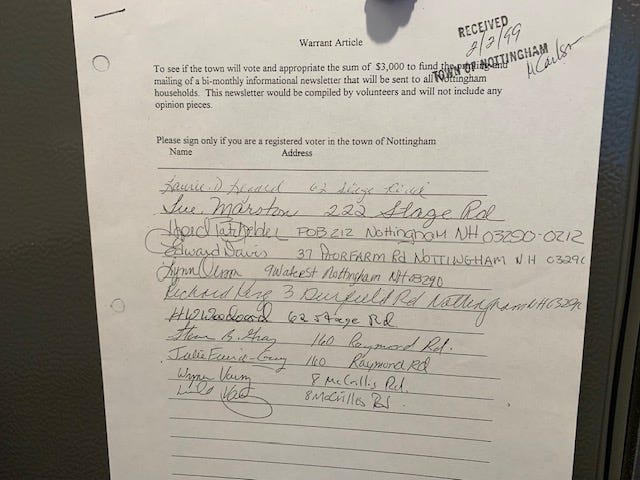 Warrant Article
RECEIVED
2/2/99
TOWN OF NOTTINGHAM
M Carlson
To see if the town will vote and appropriate the sum of $3,000 to fund the printing and
mailing of a bi-monthly informational newsletter that will be sent to all Nottingham
households. This newsletter would be compiled by volunteers and will not include any
opinion pieces.
Please sign only if you are a registered voter in the town of Nottingham
Name Address
Laurie D 62 Stage Road
Sue Marston 222 Stage Rd
POB 212 Nottingham NH 03290-0212
Edward Davis 37 Rd NOTTINGHAM NH 0329
Lynn 9 Water St Nottingham NH 03290
Richard 3 Deerfield Rd Nottingham NH 03290
62 Stage Rd.
B. Gray 160 Raymond Rd.
Julie 160 Raymond Rd
8 McCrillis Rd.
8 McCrillis Rd.